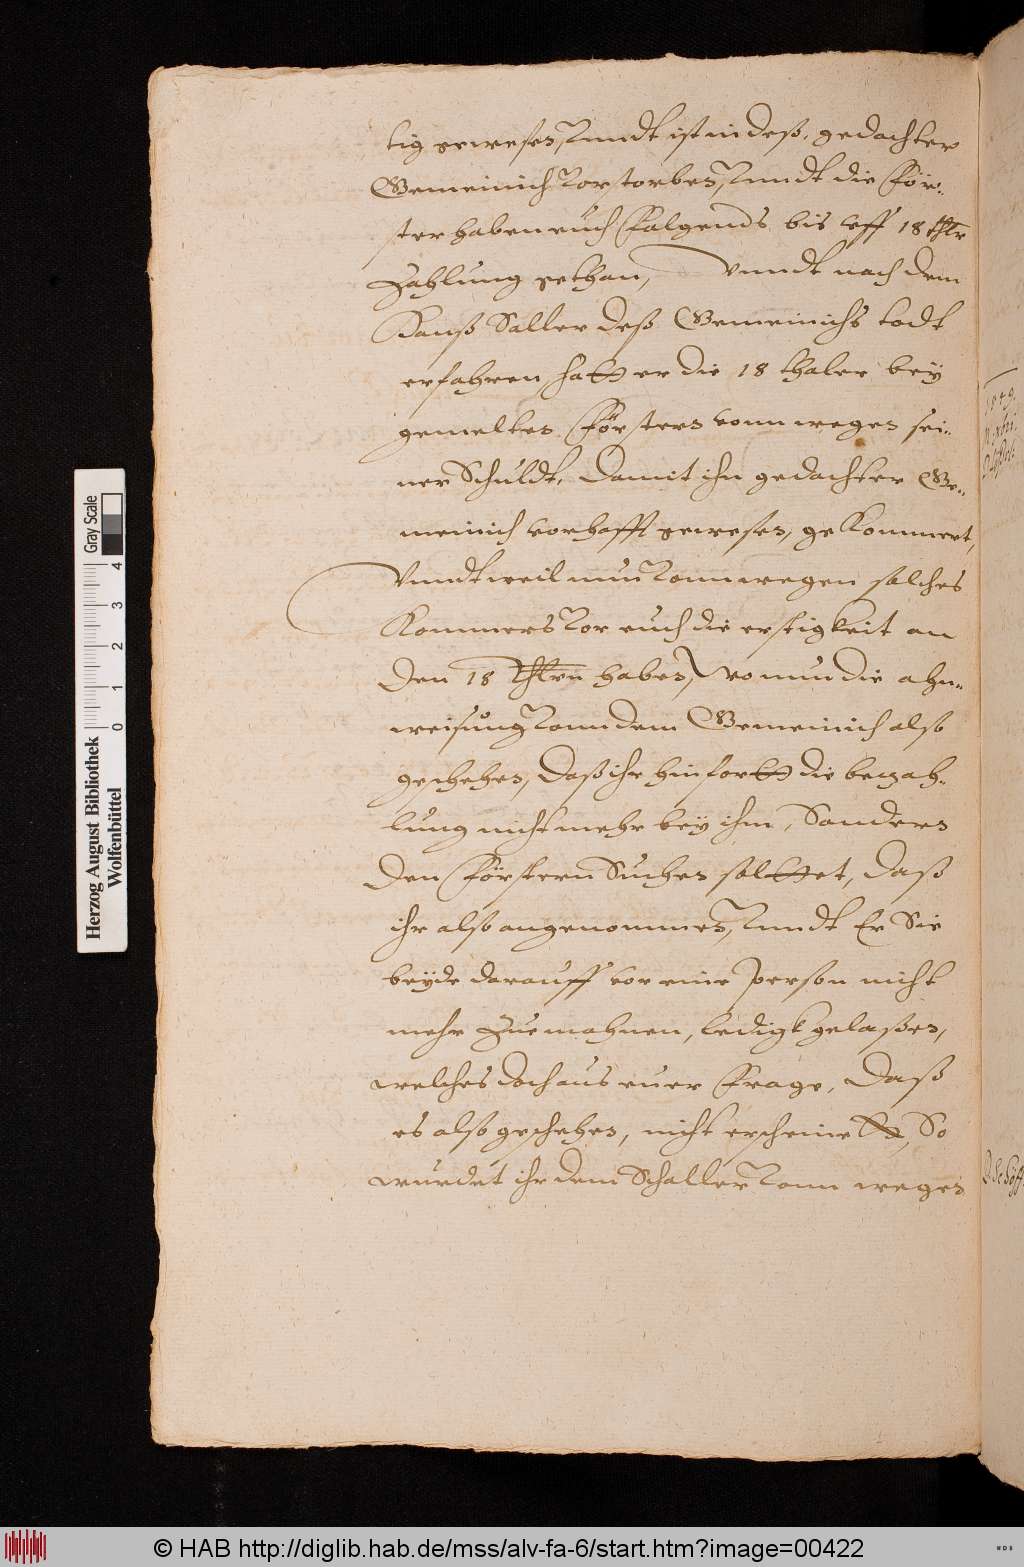 tig gewesen, Vnndt ist in deß, gedachter
Gemeinich Vorstorben, Vnndt die För-
ster haben euch Folgends bis vff 18 thlr
Zahlung gethan, Vnndt nach dem
Hanß Saller deß Gemeinichs todt
erfahren, hatt er die 18 thaler bey
gemelten Förstern vonn wegen sei-
ner Schuldt, Damit ihn gedachter Ge-
meinich vorhafft gewesen, gekommert,
Vnndt weil nun Vonn wegen solches
Kommers Vor euch die erstigkeit an
den 18 Thlrn haben, wo nun die ahn-
weisung Vonn dem Gemeinich also
geschehen, Daß ihr hinfortt die bezah-
lung nicht mehr bey ihm, Sondern
den Förstern Suchen solttet, Daß
ihr also angenommen, Vnndt Er Sie
beyde darauff vor eine person nicht
mehr Zue mahnen, ledigk gelaßen,
welches doch aus euer Frage, Daß
es also geschehen, nicht erscheinett, So
wurdet ihr dem Schaller Vonn wegen
1549.
Gray Scale
0 1 2 3 4
Herzog August Bibliothek
Wolfenbüttel
© HAB http://diglib.hab.de/mss/alv-fa-6/start.htm?image=00422
WDB